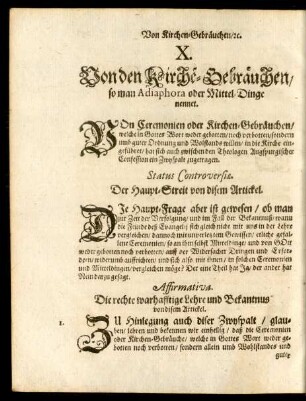 Von Kirchen-Gebräuchen/ꝛc.
X.
Von den Kirchē-Gebräuchen/
so man Adiaphora oder Mittel-Dinge
nennet.
VOn Ceremonien oder Kirchen-Gebräuchen/
welche in Gottes Wort weder geboten/ noch verboten/ sondern
umb guter Ordnung und Wolstands willen/ in die Kirche ein-
geführet/ hat sich auch zwischen den Theologen Augspurgischer
Confession ein Zwyspalt zugetragen.
Status Controversiæ.
Der Haupt-Streit von disem Artickel.
DJe Haupt-Frage aber ist gewesen/ ob man
zur Zeit der Verfolgung und im Fall der Bekantnuß/ wann
die Feinde deß Evangelij sich gleich nicht mit uns in der Lehre
vergleichen/ dannoch mit unverletztem Gewissen/ etliche gefal-
lene Ceremonien/ so an ihm selbst Mitteldinge/ und von GOtt
weder geboten noch verboten/ auff der Widersacher Dringen und Erfor-
dern/ wider auffrichten/ und sich also mit ihnen/ in solchen Ceremonien
und Mitteldingen/ vergleichen möge? Der eine Theil hat Ja/ der ander hat
Nein darzu gesagt.
Affirmativa.
Die rechte warhafftige Lehre und Bekantnus
von disem Artickel.
1. ZU Hinlegung auch diser Zwyspalt/ glau-
ben/ lehren und bekennen wir einhellig/ daß die Ceremonien
oder Kirchen-Gebräuche/ welche in Gottes Wort weder ge-
boten noch verboten/ sondern allein umb Wohlstandes und